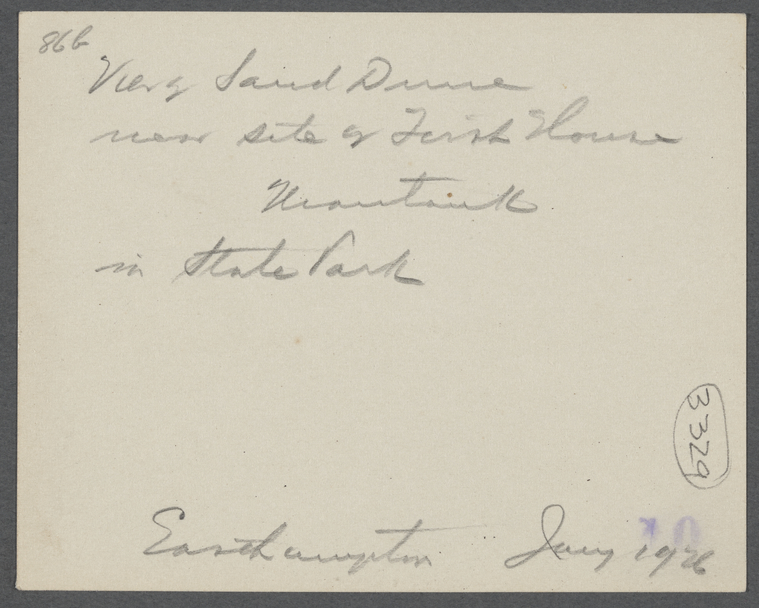 86b
View of Sand Dune
near site of First House
Montauk
in State Park
3329
Easthampton July 1926